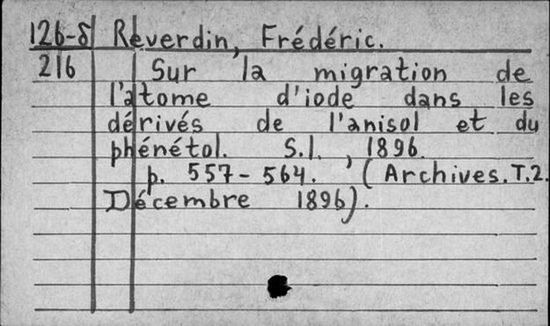 126-δ Reverdin, Frédéric.
216 Sur la migration de
l'atome d'iode dans les
dérivés de l'anisol et du
phénétol. S.l., 1896.
p. 557-564. (Archives. T.2.
Décembre 1896).